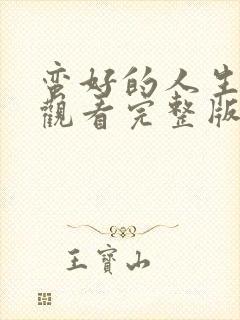 蛮好的人生
觀看完整版
王寶山